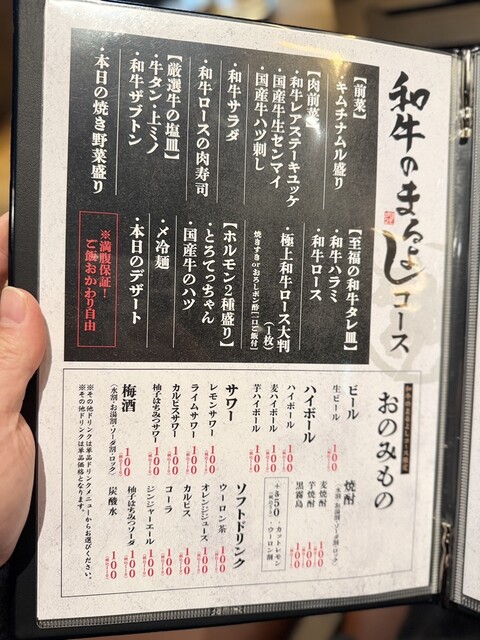 和牛のまるよしコース
【前菜】
・キムチナムル盛り
【肉前菜】
・和牛レアステーキユッケ
・国産牛生センマイ
・国産牛ハツ刺し
・和牛サラダ
・和牛ロースの肉寿司
【厳選牛の塩皿】
・牛タン・上ミノ
・和牛ザブトン
・本日の焼き野菜盛り
【至福の和牛タレ皿】
・和牛ハラミ
・和牛ロース
・極上和牛ロース大判
(1枚)
焼きすき or おろしポン酢【一口ご飯付】
【ホルモン2種盛り】
・とろてっちゃん
・国産牛のハツ
・〆冷麺
・本日のデザート
※満腹保証!
ご飯おかわり自由
おのみもの
ビール
生ビール 100
ハイボール
ハイボール 100
麦ハイボール 100
芋ハイボール 100
サワー
レモンサワー 100
ライムサワー 100
カルピスサワー 100
柚子はちみつサワー 100
梅酒
(水割・お湯割・ソーダ割・ロック) 100
焼酎
(水割・お湯割・ソーダ割・ロック)
麦焼酎 100
芋焼酎 100
黒霧島 100
+各50
・カットレモン
・ウーロン割
ソフトドリンク
ウーロン茶 100
オレンジジュース 100
カルピス 100
コーラ 100
ジンジャーエール 100
柚子はちみつソーダ 100
炭酸水 100
※その他ドリンクは単品ドリンクメニューからお選びください。
※その他ドリンクは単品価格となります。